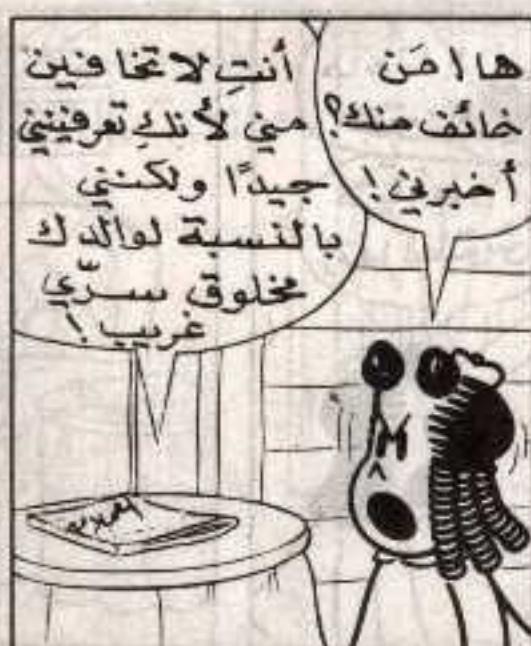 ها! مَن
خائف منك؟
أخبرني!
أنتِ لا تخافين
مني لأنكِ تعرفينني
جيدًا ولكنني
بالنسبة لوالدك
مخلوق سرّي
غريب!